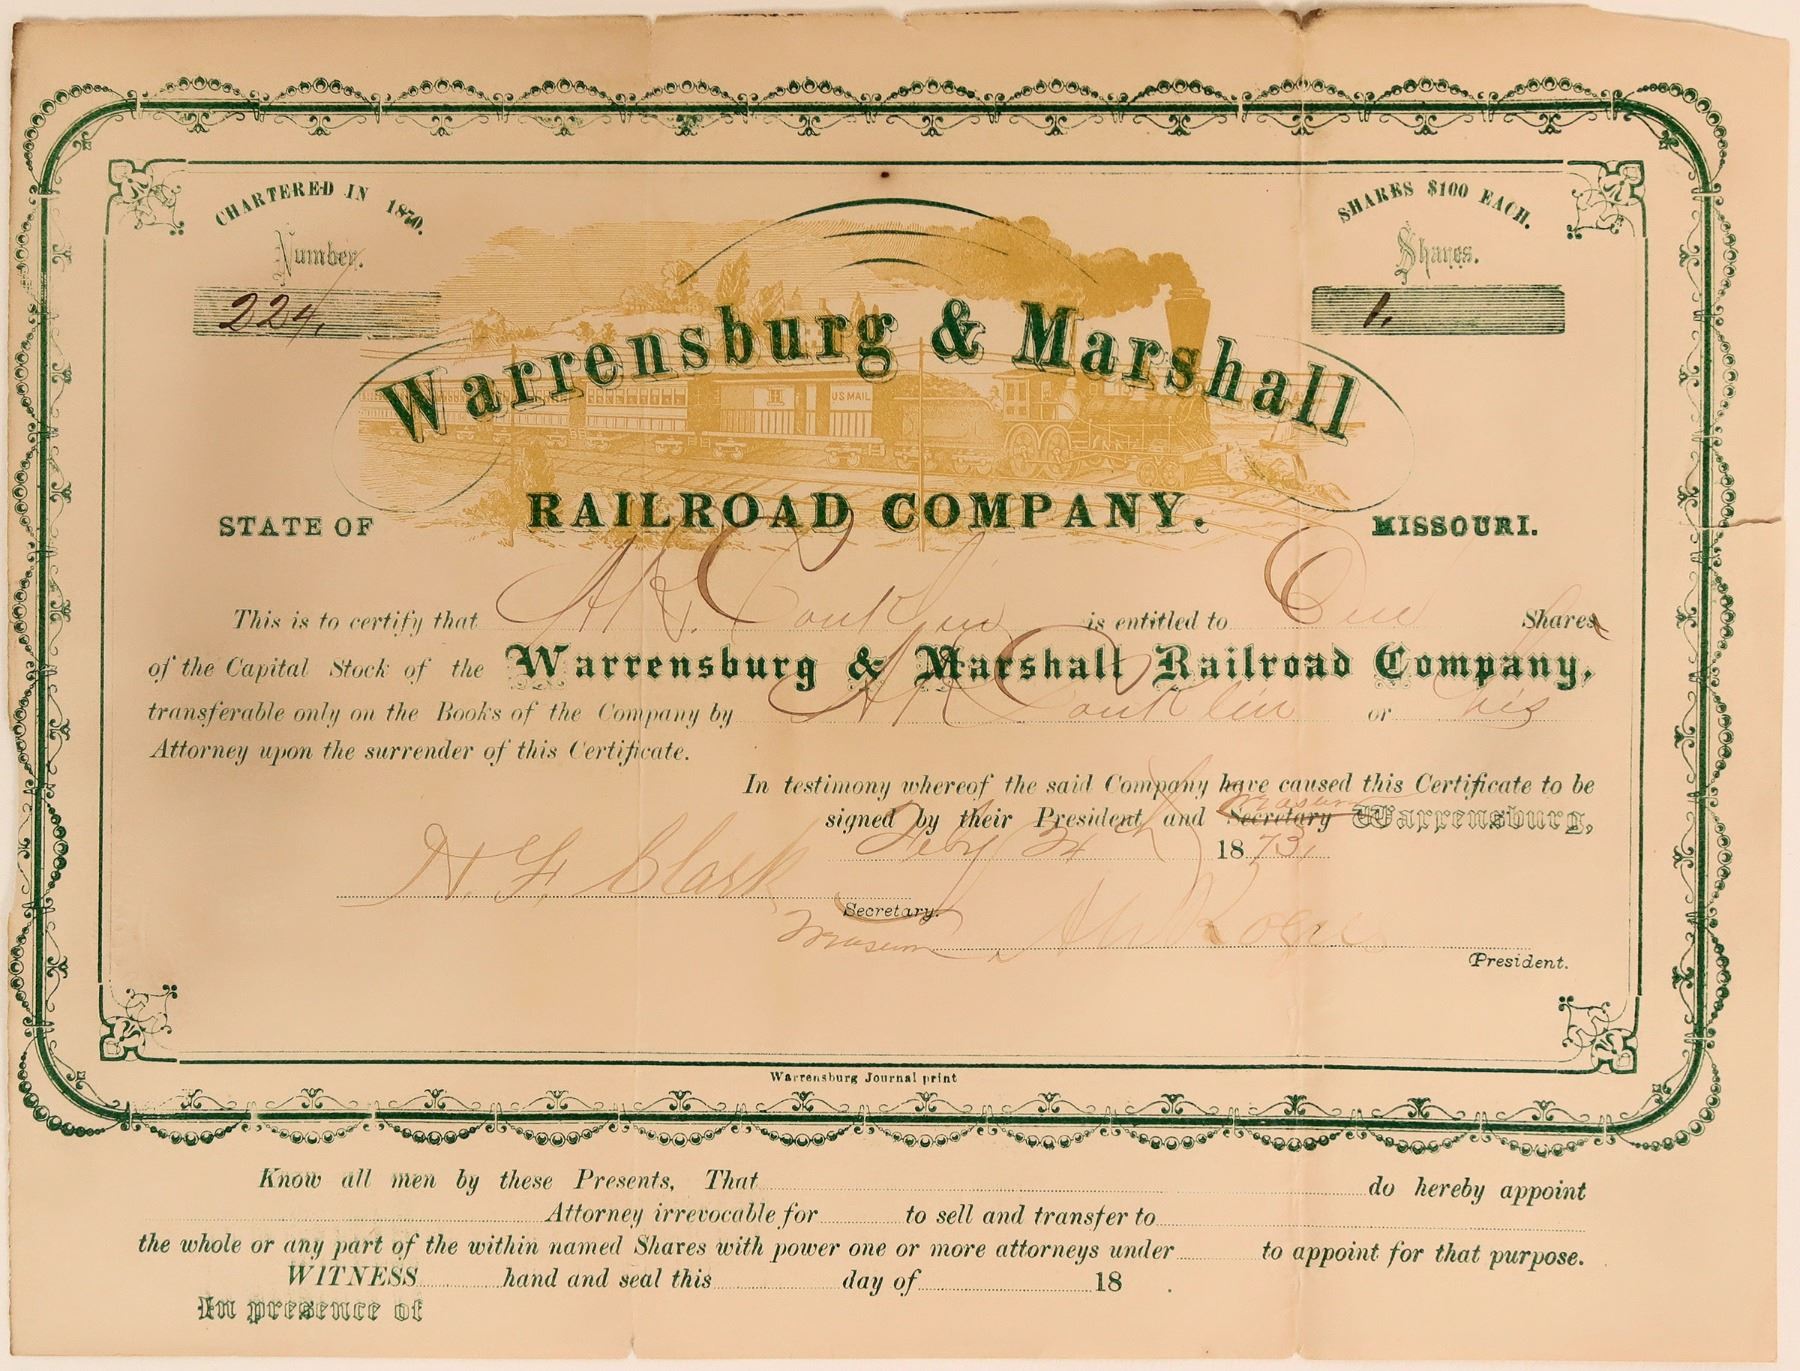 CHARTERED IN 1870.
Number.
224.
SHARES $100 EACH.
Shares.
1.
Warrensburg & Marshall
US MAIL
RAILROAD COMPANY.
STATE OF MISSOURI.
This is to certify that A K Conklin is entitled to One Shares
of the Capital Stock of the Warrensburg & Marshall Railroad Company,
transferable only on the Books of the Company by A K Conklin or his
Attorney upon the surrender of this Certificate.
In testimony whereof the said Company have caused this Certificate to be
signed by their President and Secretary Warrensburg,
Feby 24th 1873.
H. F. Clark
Secretary.
President.
Warrensburg Journal print
Know all men by these Presents, That do hereby appoint
Attorney irrevocable for to sell and transfer to
the whole or any part of the within named Shares with power one or more attorneys under to appoint for that purpose.
WITNESS hand and seal this day of 18 .
In presence of